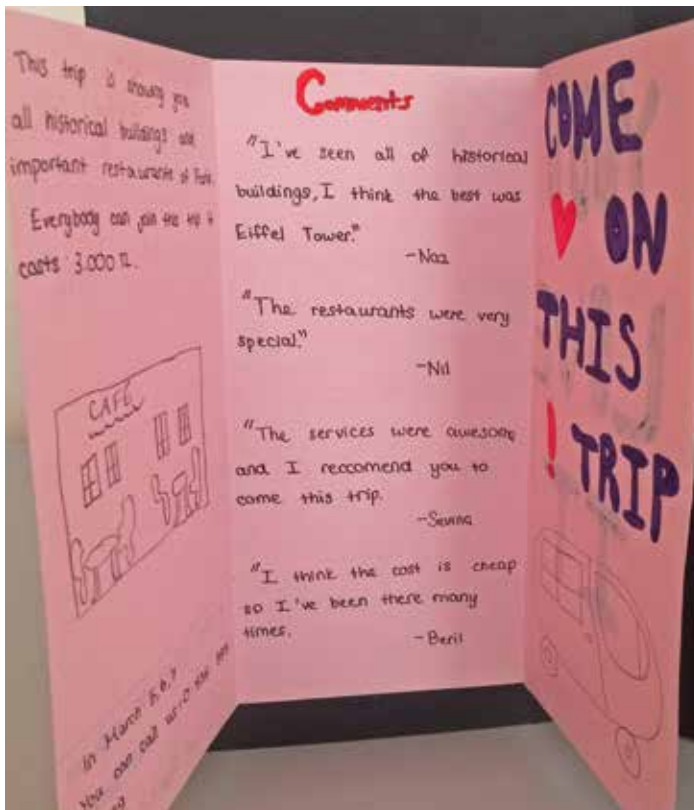 This trip is showing you
all historical buildings and
important restaurants of Paris.
Everybody can join the trip it
costs 3.000 TL.
CAFE
In March 5,6,7
you can call us:0
Comments
"I've seen all of historical
buildings, I think the best was
Eiffel Tower."
-Naz
"The restaurants were very
special."
-Nil
"The services were awesome
and I reccomend you to
come this trip.
-Sevina
"I think the cost is cheap
so I've been there many
times.
-Beril
COME
ON
THIS
! TRIP